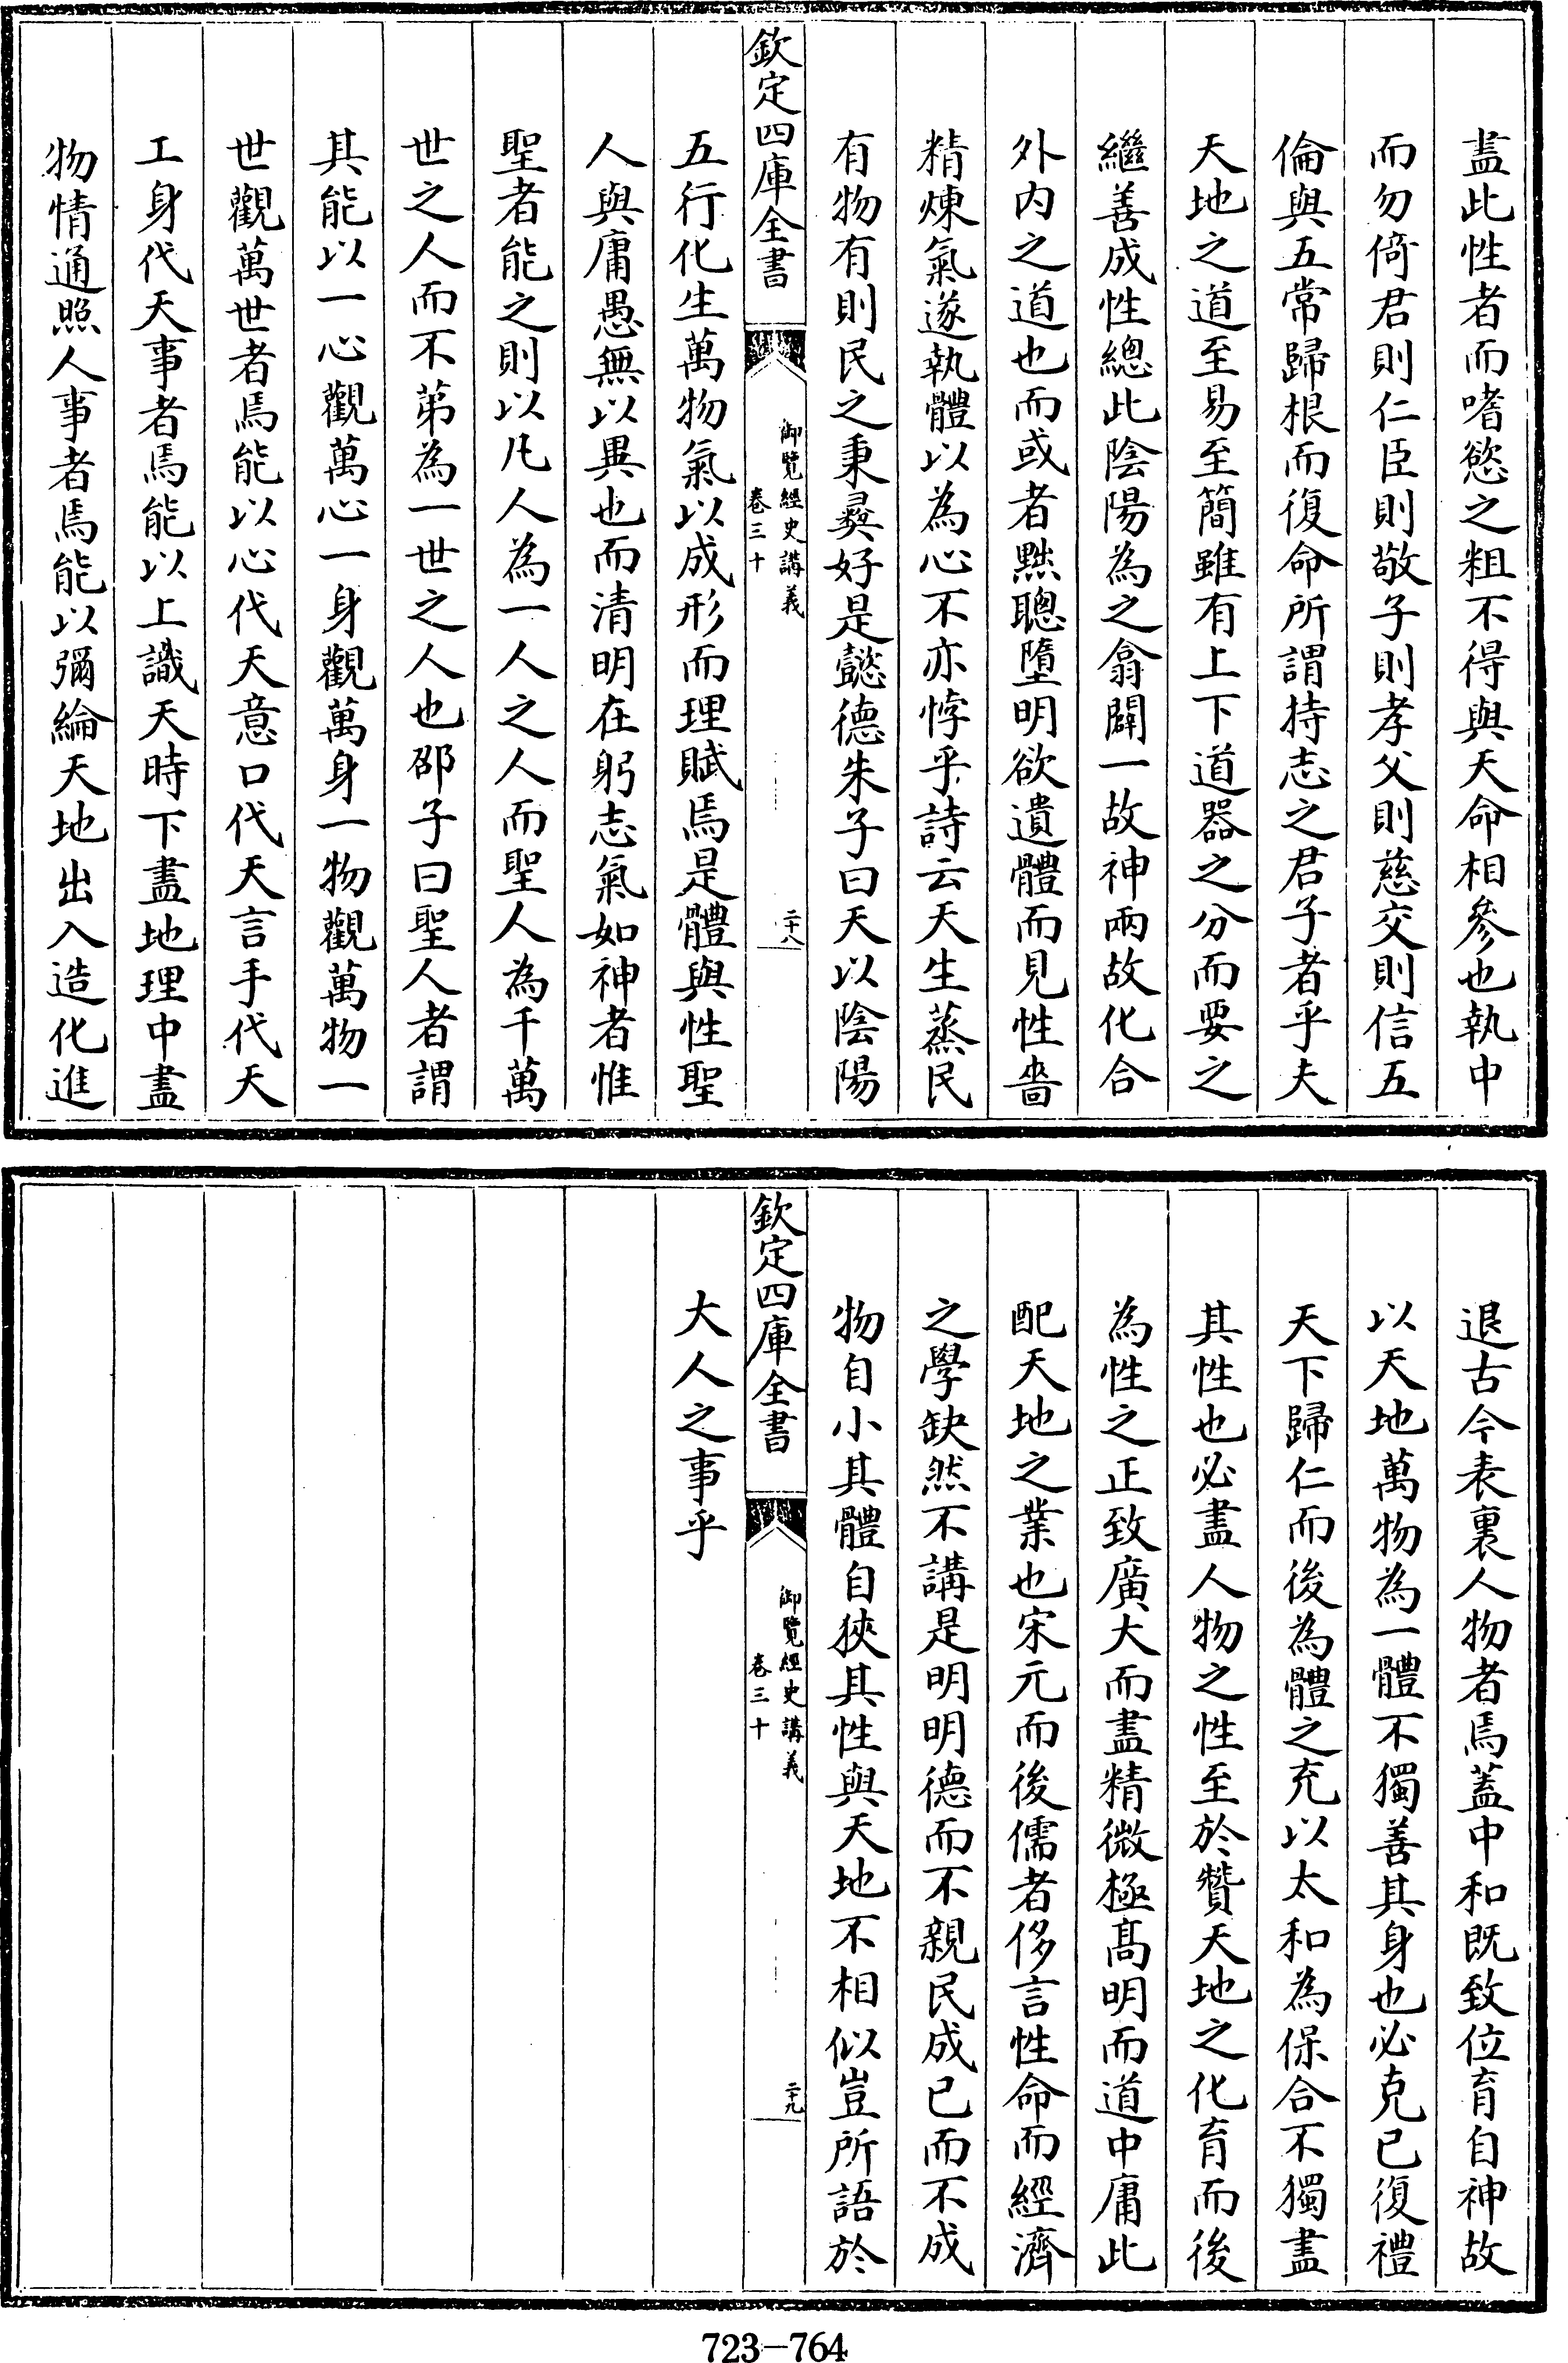 盡此性者而嗜慾之粗不得與天命相參也執中
而勿倚君則仁臣則敬子則孝父則慈交則信五
倫與五常歸根而復命所謂持志之君子者乎夫
天地之道至易至簡雖有上下道器之分而要之
繼善成性總此陰陽為之翕闢一故神兩故化合
外内之道也而或者黜聰墮明欲遺體而見性嗇
精煉氣遂執體以為心不亦悖乎詩云天生蒸民
有物有則民之秉彝好是懿德朱子曰天以陰陽
欽定四庫全書
御覽經史講義
卷三十
二十八
五行化生萬物氣以成形而理賦焉是體與性聖
人與庸愚無以異也而清明在躬志氣如神者惟
聖者能之則以凡人為一人之人而聖人為千萬
世之人而不第為一世之人也邵子曰聖人者謂
其能以一心觀萬心一身觀萬身一物觀萬物一
世觀萬世者焉能以心代天意口代天言手代天
工身代天事者焉能以上識天時下盡地理中盡
物情通照人事者焉能以彌綸天地出入造化進
退古今表裏人物者焉蓋中和既致位育自神故
以天地萬物為一體不獨善其身也必克已復禮
天下歸仁而後為體之充以太和為保合不獨盡
其性也必盡人物之性至於贊天地之化育而後
為性之正致廣大而盡精微極髙明而道中庸此
配天地之業也宋元而後儒者侈言性命而經濟
之學缺然不講是明明德而不親民成已而不成
物自小其體自狹其性與天地不相似豈所語於
欽定四庫全書
御覽經史講義
卷三十
二十九
大人之事乎
723-764